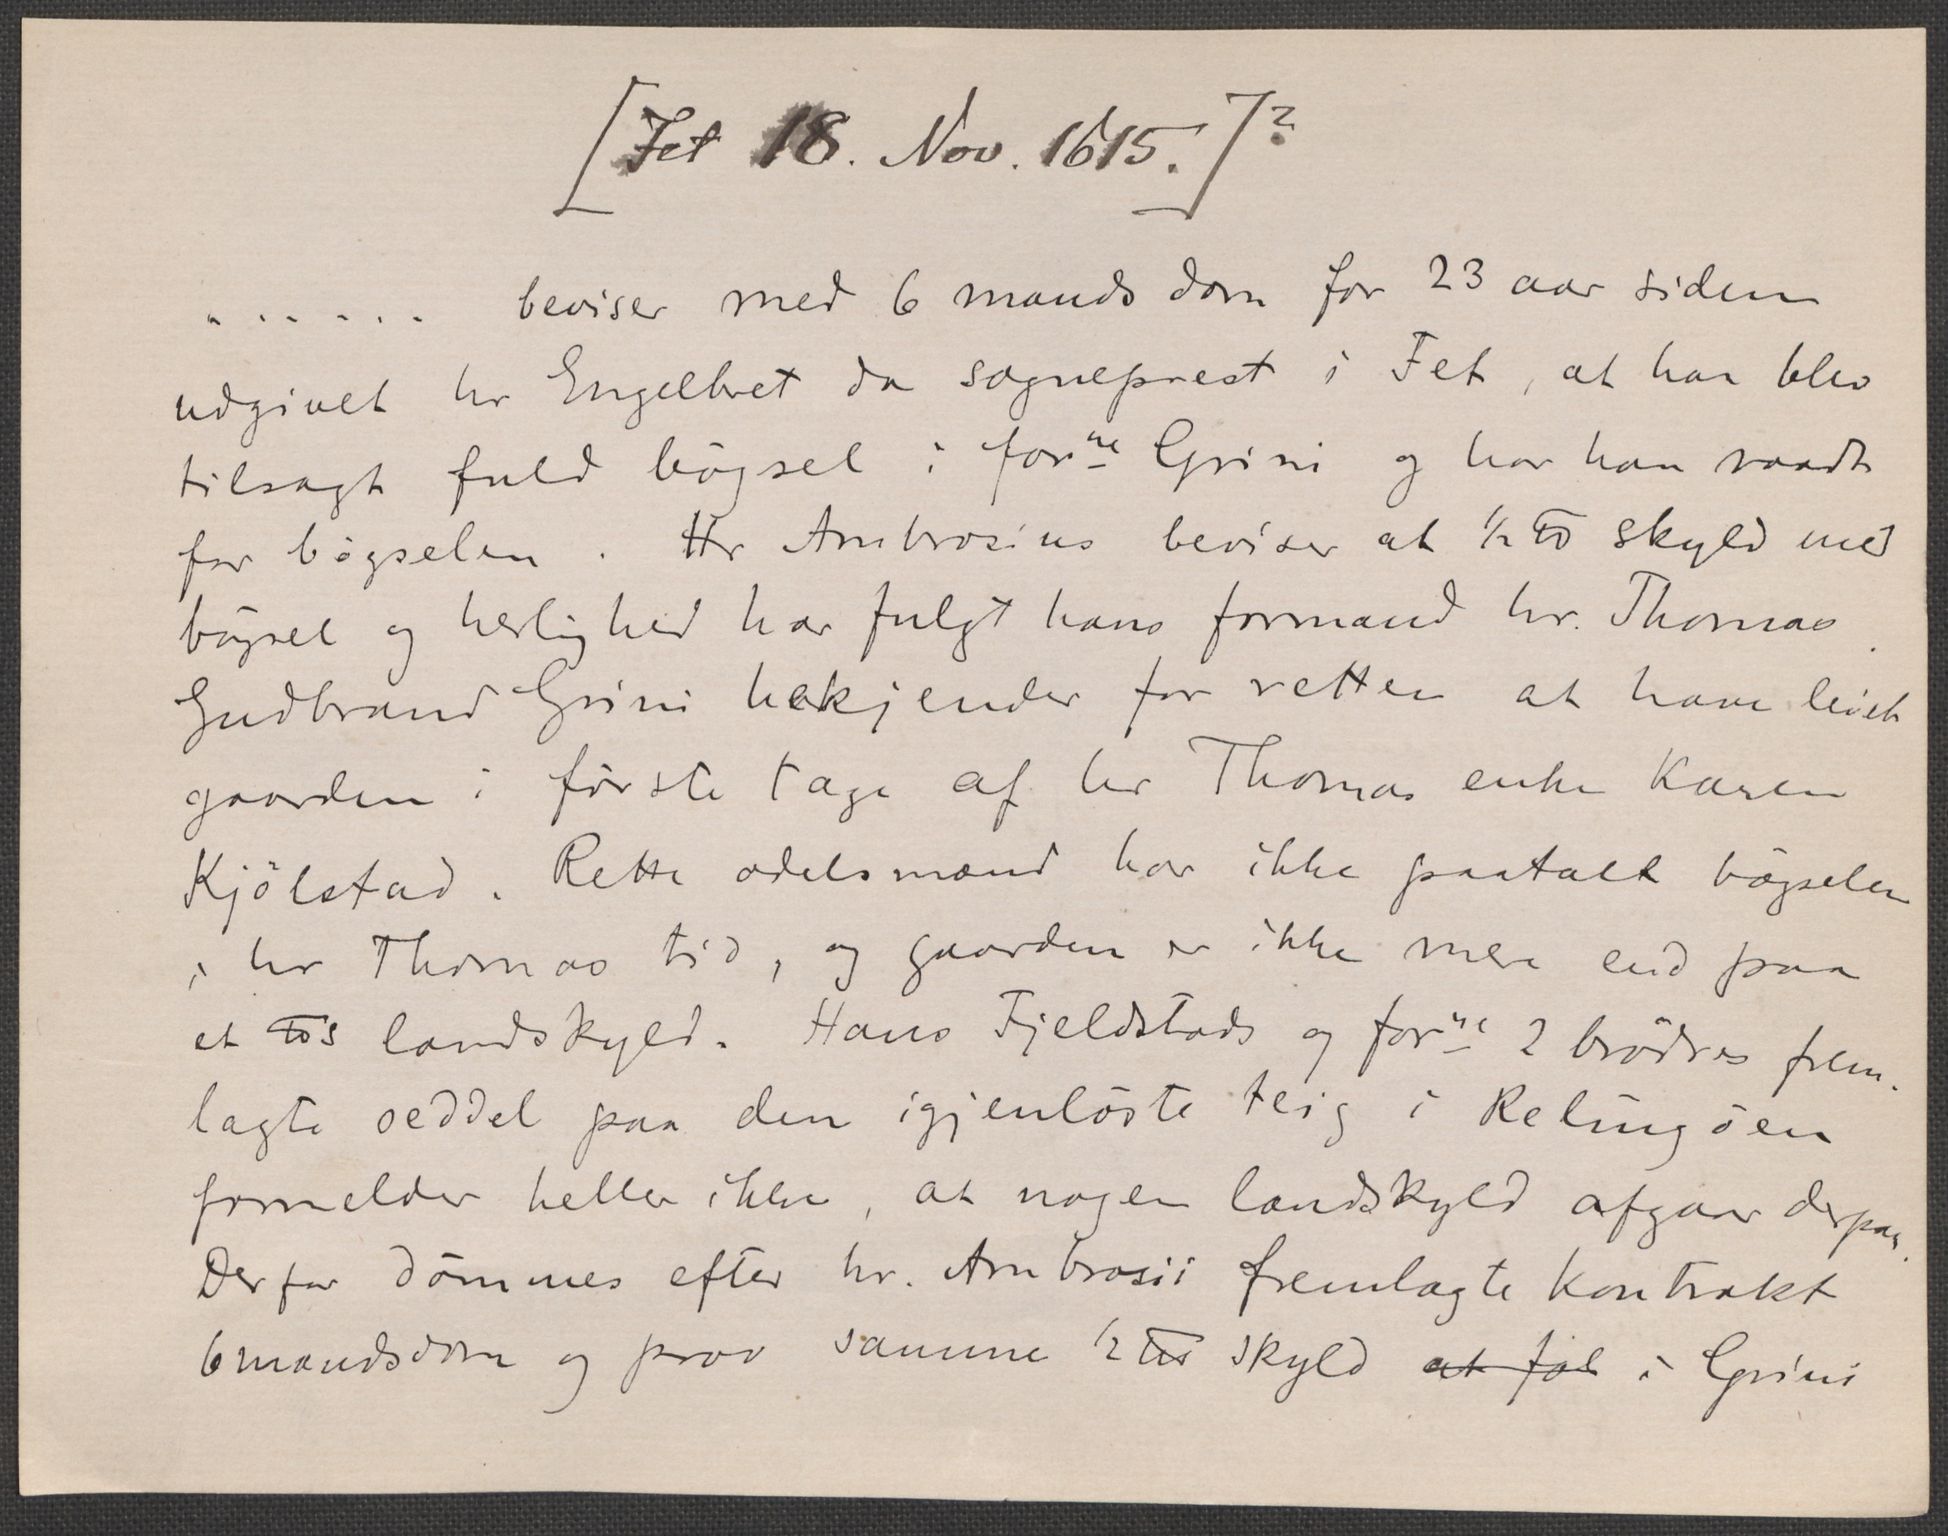 [Fet 18. Nov. 1615.]?
. . . . . . beviser med 6 mands dom for 23 aar siden
udgivet hr Engelbret da sogneprest i Fet, at han blev
tilsagt fuld bögsel i forne Grini og har han raadt
for bögselen. Hr Ambrosius beviser at 1/2 skyld med
bögsel og herlighed har fulgt hans formand hr. Thomas.
Gudbrand Grini bekjender for retten at have leiet
gaarden i förste tage af hr Thomas enke Karen
Kjölstad. Rette odelsmænd har ikke paatalt bögselen
i hr Thomas tid, og gaarden er ikke mere end paa
et landskyld. Hans Fjeldstads og forne 2 brödres frem-
lagte seddel paa den igjenlöste teig i Relingöen
formelder heller ikke, at nogen landskyld afgaar derpaa.
Derfor dömmes efter hr. Ambrosii fremlagte kontrakt
6mandsdom og prov samme 1/2 skyld at föl i Grini